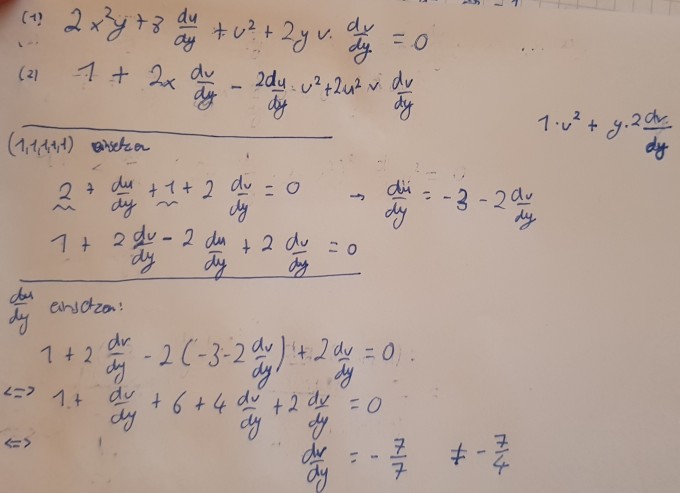 (1) 2x²y + 3 du/dy + v² + 2y v · dv/dy = 0
(2) 1 + 2x dv/dy - 2 du/dy · v² + 2u² v dv/dy
1·v² + y·2 dv/dy
(1,1,1,1,1) einsetzen
2 + du/dy + 1 + 2 dv/dy = 0 → du/dy = -3 - 2 dv/dy
1 + 2 dv/dy - 2 du/dy + 2 dv/dy = 0
du/dy einsetzen:
1 + 2 dv/dy - 2(-3-2 dv/dy) + 2 dv/dy = 0
<=> 1 + dv/dy + 6 + 4 dv/dy + 2 dv/dy = 0
<=> dv/dy = - 7/7 ≠ - 7/4